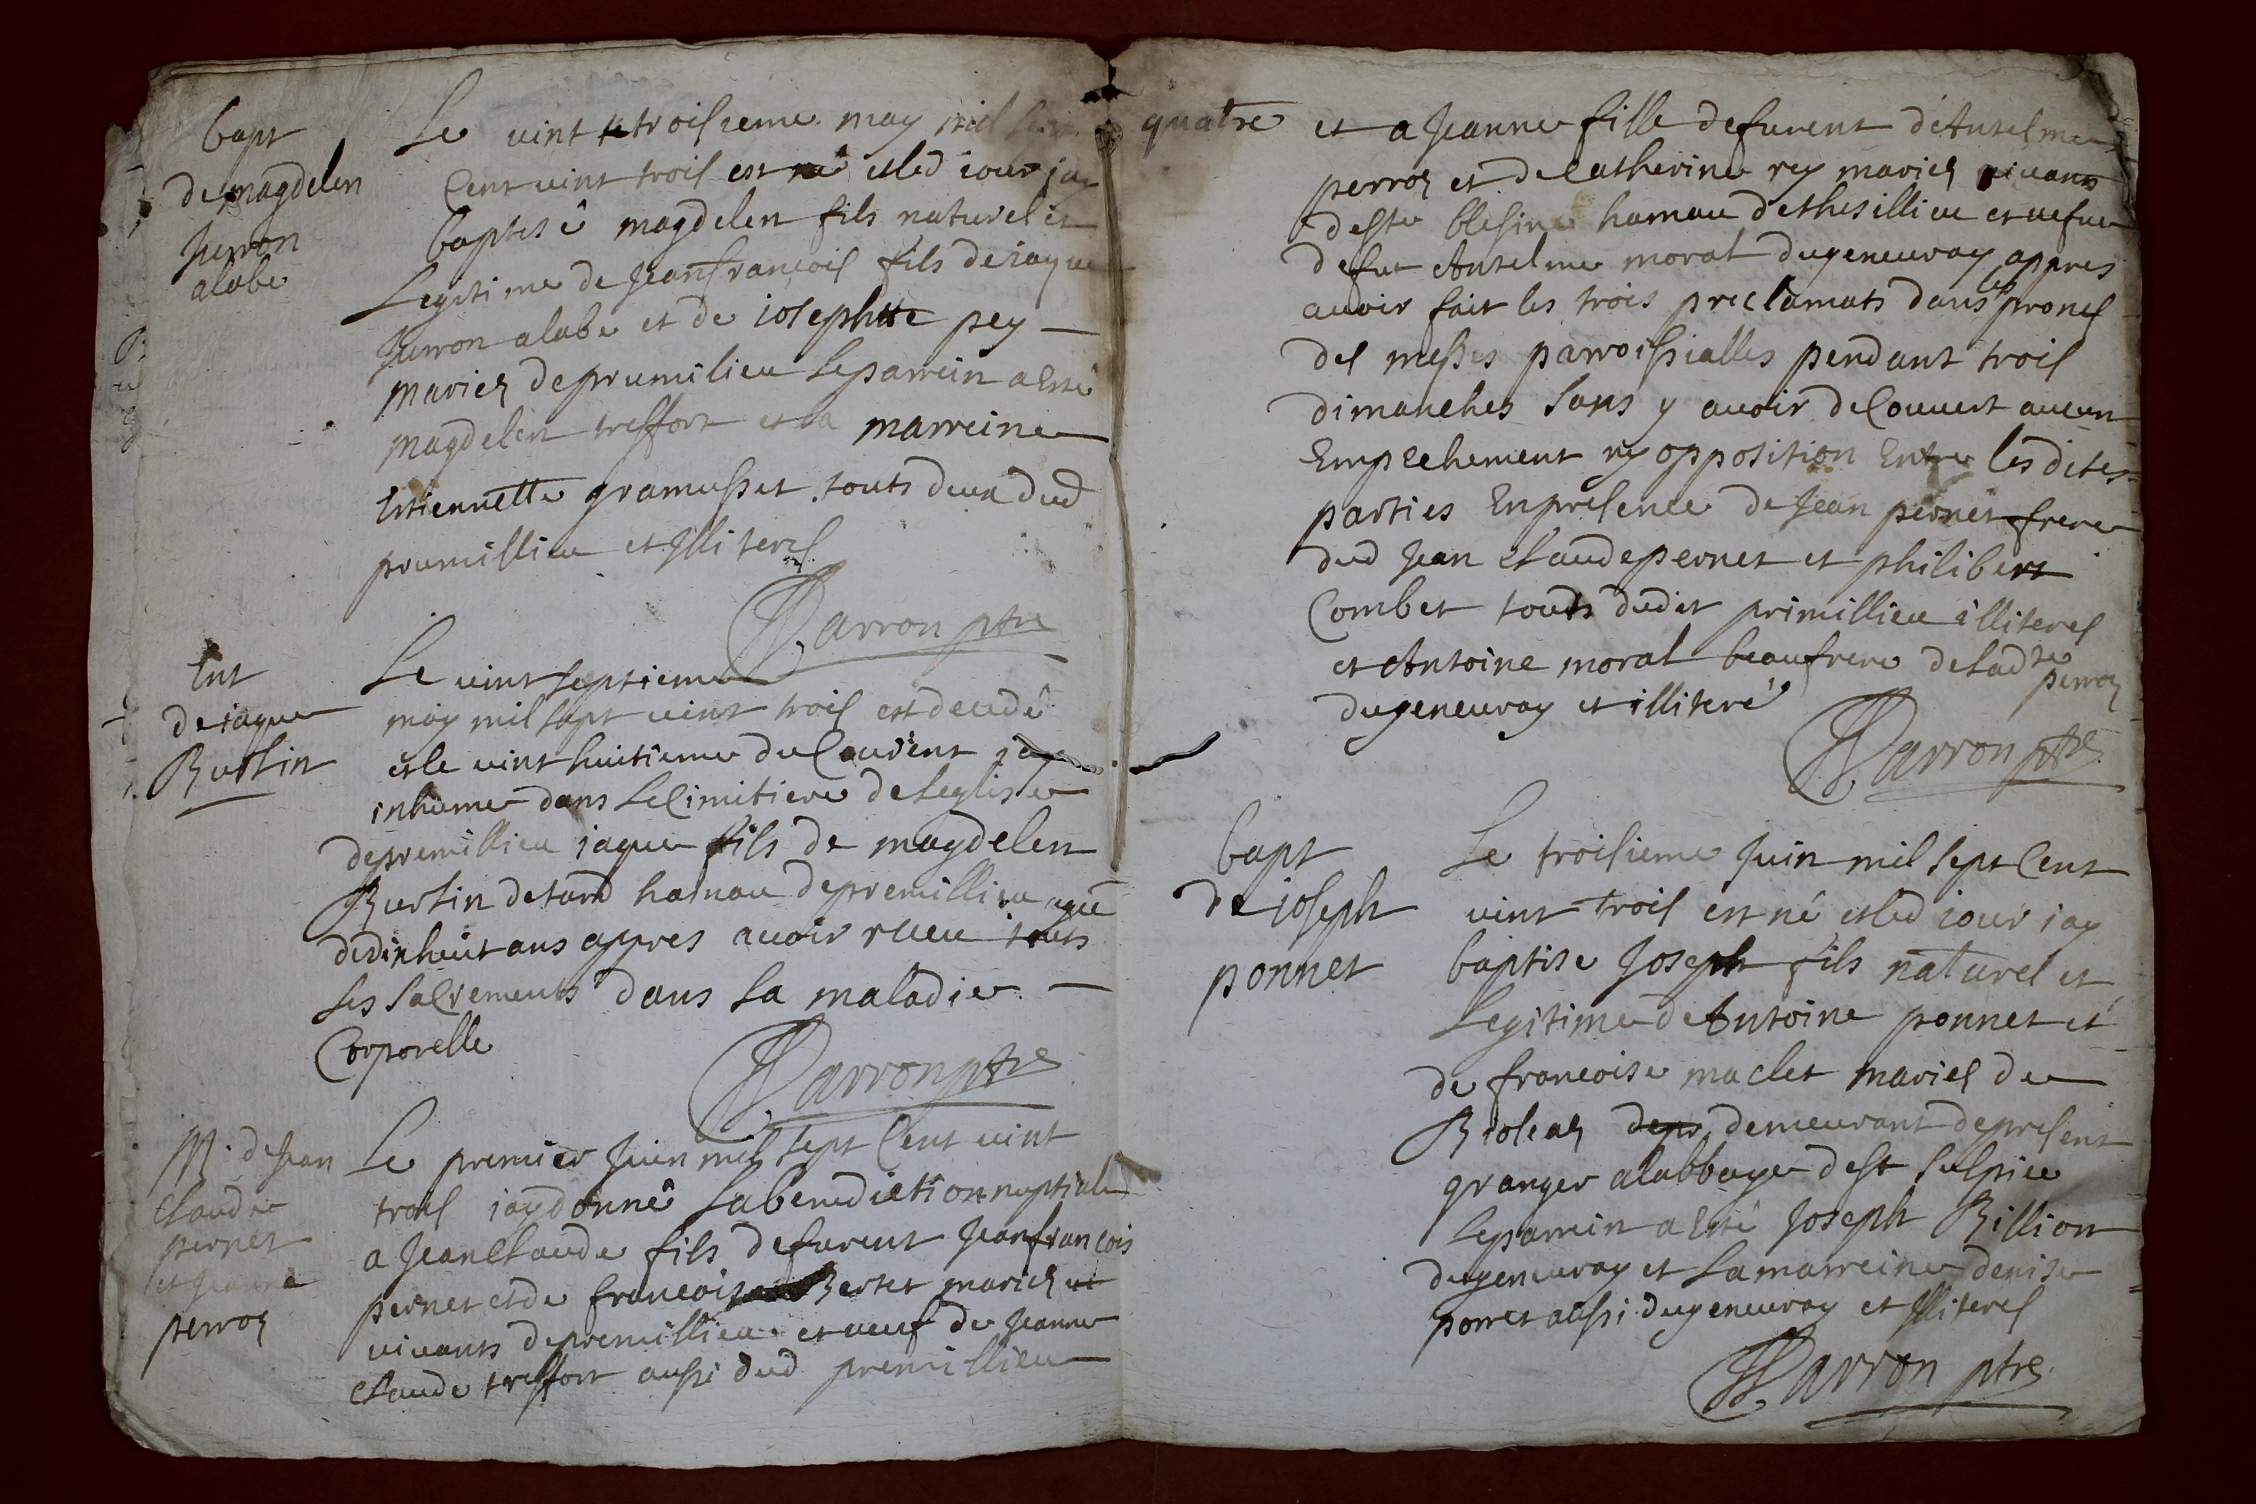 bapt
de magdelen
Juvvon
alabe
Le vint et troisieme may mil sept
Cent vint trois est né et led jour jay
baptisé magdelen fils naturel et
Legitime de Jean françois fils de jaque
Juvvon alabe et de josephte pey
mariez de prumilieu Le parrein a esté
magdelen treffort et la marreine
Estiennette gramusset touts deux dud
prumillieu et Illiterés
Parron ptre
Ent
de jaque
Burtin
Le vint septieme
may mil sept vint trois est decedé
et le vint huitieme du Courent jay
inhumé dans Le Cimitiere de Leglise
de premillieu jaque fils de magdelen
Burtin de hamau de premillieu agé
de dixhuit ans appres avoir receu touts
Les sacrements dans sa maladie
Corporelle
Parron ptre
M. de Jean
Claude
pernet
et Jeanne
perroz
Le premier Juin mil sept Cent vint
trois jay donné La benediction nuptiale
a Jean Claude fils de furent Jean françois
pernet et de françoise Bertet mariez
vivants de premillieu et veuf de Jeanne
Claude treffort aussi dud premillieu
quatre
et a Jeanne fille de furent d'Anselme
perroz et de Catherine rey mariez vivants
de Ste blesine hamau d'ethesillieu et vefve
de fut Anselme morat du geneuvray appres
avoir fait les trois preclamats dans les prones
des messes parroissialles pendant trois
dimanches sans y avoir decouvert aucun
Empechement ny opposition Entre les dites
parties En presence de Jean pernet frere
dud Jean Claude pernet et philibert
Combet touts dudit primillieu illiterés
et Antoine morat beaufrere de Ladte
perroz
du geneuvray et illiteré
Parron ptre
bapt
de joseph
ponnet
Le troisieme Juin mil sept Cent
vint trois est né et led jour jay
baptise Joseph fils naturel et
Legitime de Antoine ponnet et
de françoise maclet mariez de
Rioleaz demeurant de present
granger a labbaye de St sulpice
Le parrein a esté Joseph Billion
du geneuvray et La marreine denise
porret aussi du geneuvray et Illiterés
Parron ptre